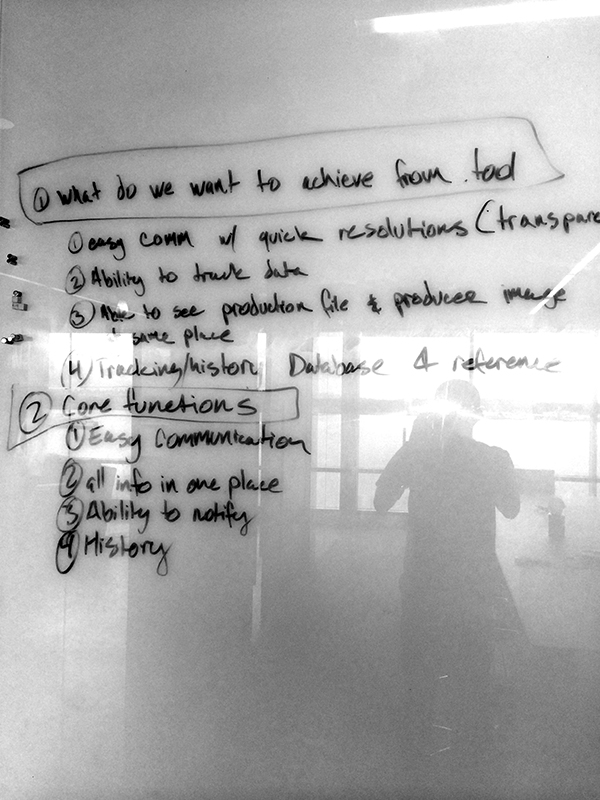 ① What do we want to achieve from tool
① easy comm w/ quick resolutions (transpare
② Ability to track data
③ Able to see production file & producer image
same place
④ Tracking/history Database & reference
② Core functions
① Easy communication
② all info in one place
③ Ability to notify
④ History